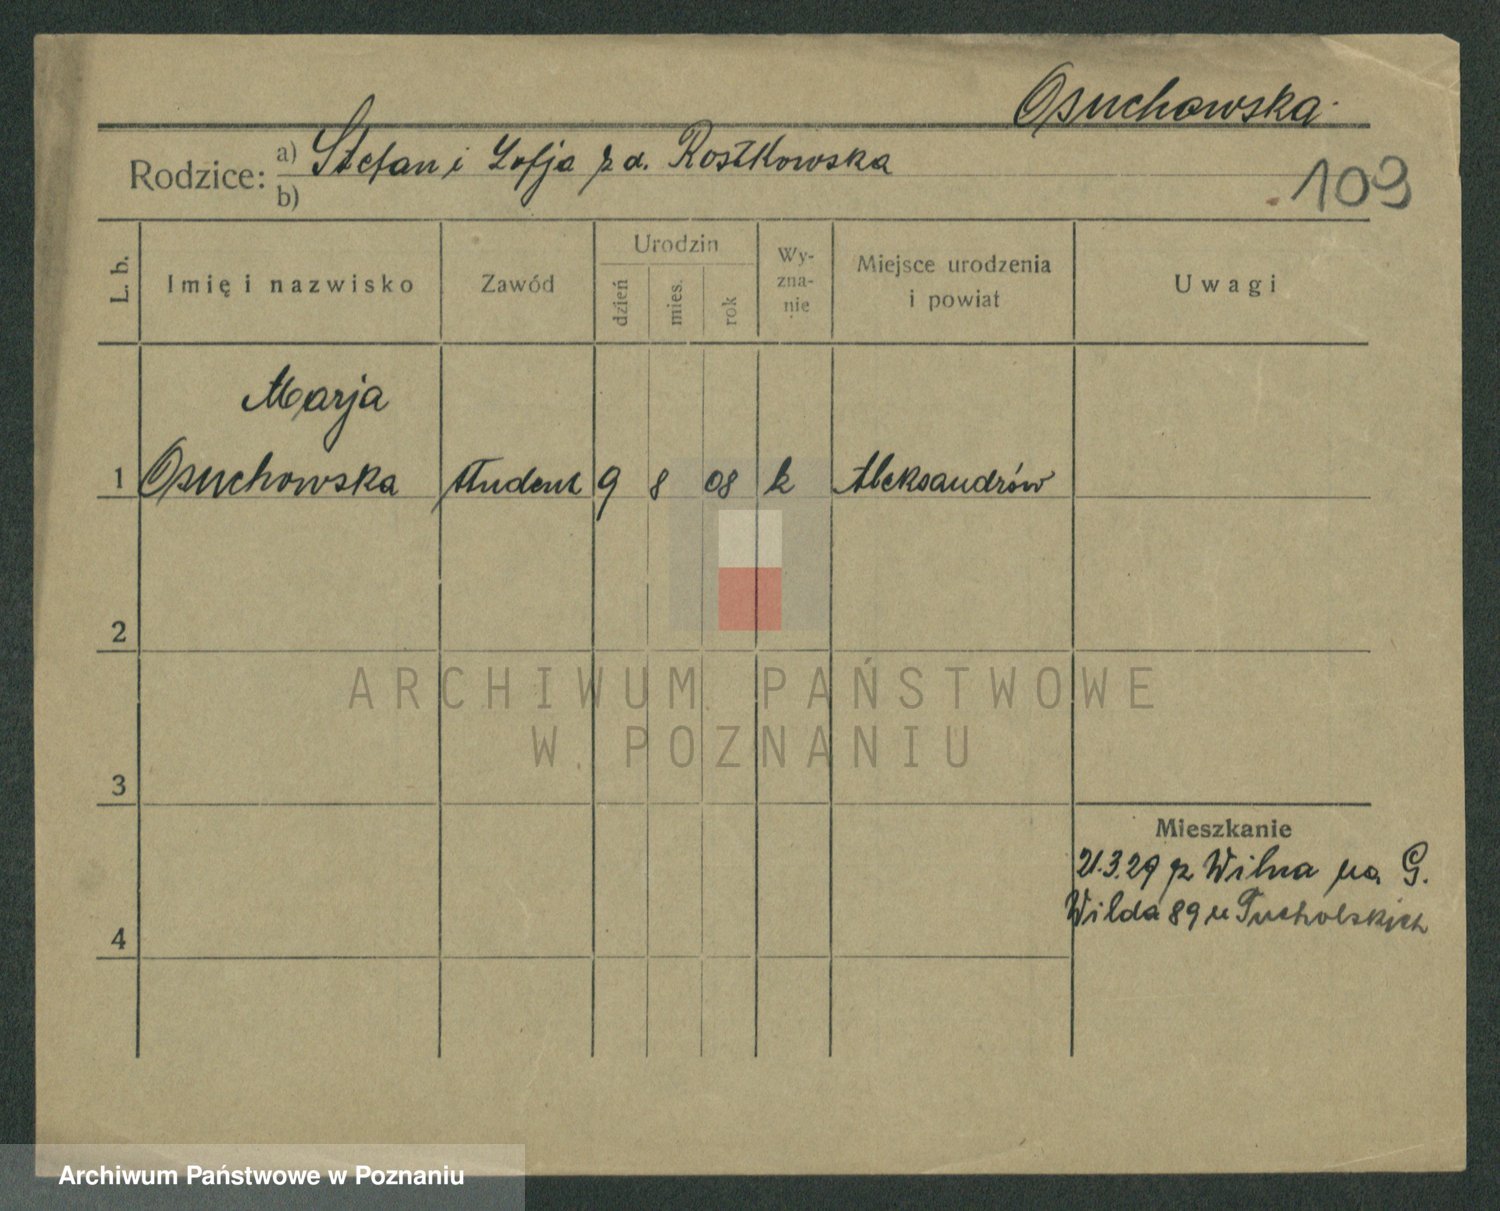 Osuchowska
Rodzice: a) Stefan i Zofja z d. Rostkowska
b)
109
L. b.
Imię i nazwisko
Zawód
Urodzin
dzień
mies.
rok
Wy-
zna-
nie
Miejsce urodzenia
i powiat
Uwagi
Marja
1 Osuchowska student 9 8 08 k Aleksandrów
2
3
4
Mieszkanie
21.3.29 z Wilna na G.
Wilda 89 u Tucholskich
ARCHIWUM PAŃSTWOWE
W POZNANIU
Archiwum Państwowe w Poznaniu